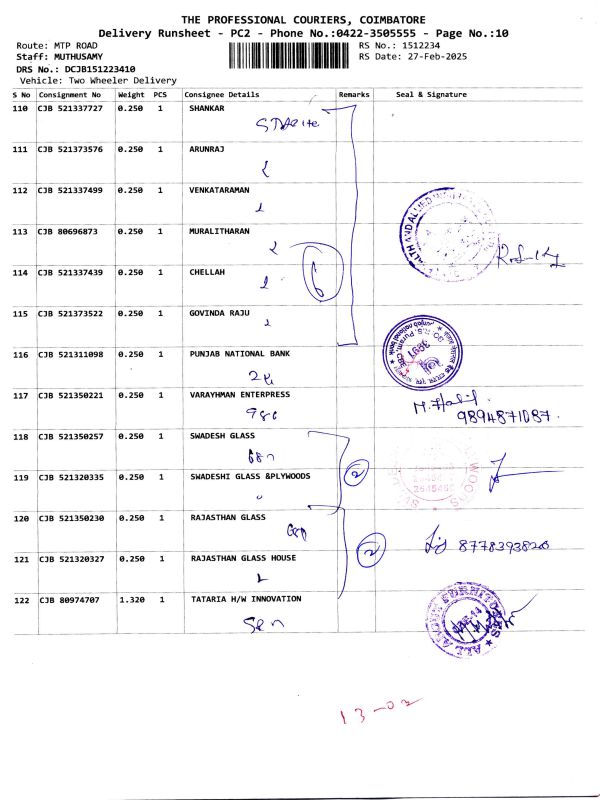 THE PROFESSIONAL COURIERS, COIMBATORE
Delivery Runsheet - PC2 - Phone No.:0422-3505555 - Page No.:10
Route: MTP ROAD
RS No.: 1512234
Staff: MUTHUSAMY
RS Date: 27-Feb-2025
DRS No.: DCJB151223410
Vehicle: Two Wheeler Delivery
S No Consignment No Weight PCS Consignee Details Remarks Seal & Signature
110 CJB 521337727 0.250 1 SHANKAR
111 CJB 521373576 0.250 1 ARUNRAJ
112 CJB 521337499 0.250 1 VENKATARAMAN
113 CJB 80696873 0.250 1 MURALITHARAN
114 CJB 521337439 0.250 1 CHELLAH
6
115 CJB 521373522 0.250 1 GOVINDA RAJU
116 CJB 521311098 0.250 1 PUNJAB NATIONAL BANK
punjab national bank
117 CJB 521350221 0.250 1 VARAYHMAN ENTERPRESS
9894871087.
118 CJB 521350257 0.250 1 SWADESH GLASS
119 CJB 521320335 0.250 1 SWADESHI GLASS &PLYWOODS
2
120 CJB 521350230 0.250 1 RAJASTHAN GLASS
8778393820
121 CJB 521320327 0.250 1 RAJASTHAN GLASS HOUSE
2
122 CJB 80974707 1.320 1 TATARIA H/W INNOVATION
13-02